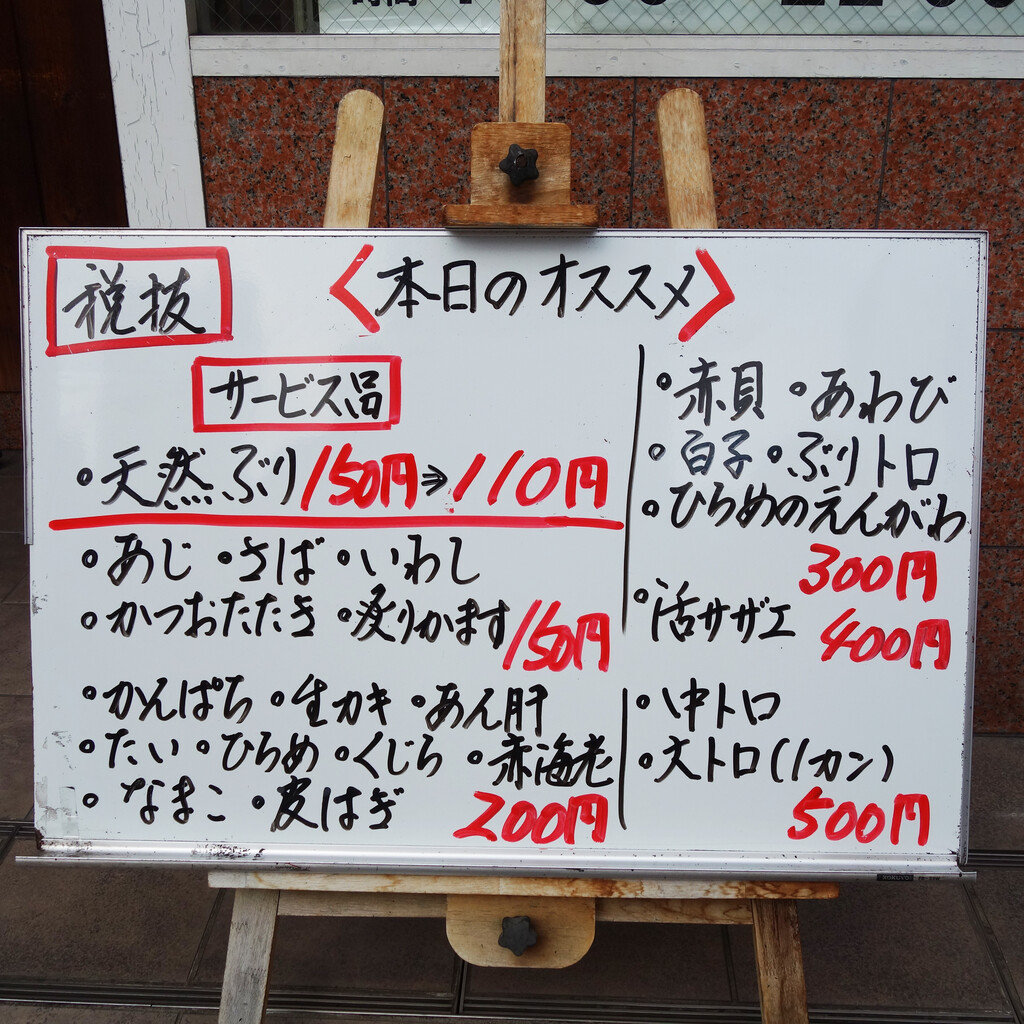 税抜
〈本日のオススメ〉
サービス品
・天然ぶり150円⇒110円
・あじ ・さば ・いわし
・かつおたたき ・炙りかます150円
・かんぱち ・生カキ ・あん肝
・たい ・ひらめ ・くじら ・赤海老
・なまこ ・皮はぎ 200円
・赤貝 ・あわび
・白子 ・ぶりトロ
・ひらめのえんがわ
300円
・活サザエ 400円
・中トロ
・大トロ(1カン)
500円